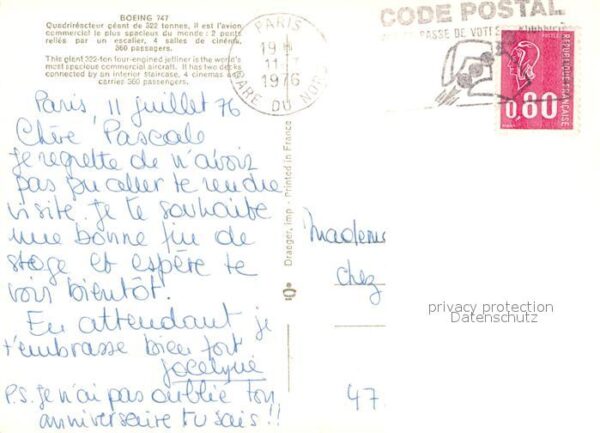 BOEING 747
Quadriréacteur géant de 322 tonnes, il est l'avion
commercial le plus spacieux du monde : 2 ponts
reliés par un escalier, 4 salles de cinéma,
360 passagers.
This giant 322-ton four-engined jetliner is the world's
most spacious commercial aircraft. It has two decks
connected by an interior staircase, 4 cinemas and
carries 360 passengers.
PARIS
19 H
11
1976
GARE DU NORD
CODE POSTAL
PASSE DE VOT
POSTES
RÉPUBLIQUE FRANÇAISE
0,80
Paris, 11 juillet 76
Chère Pascale
je regrette de n'avoir
pas pu aller te rendre
visite. je te souhaite
une bonne fin de
stage et espère te
voir bientôt.
En attendant je
t'embrasse bien fort
jocelyne
P.S. je n'ai pas oublié ton
anniversaire tu sais !!
Draeger, imp. - Printed in France
Mademo
chez
47.
privacy protection
Datenschutz